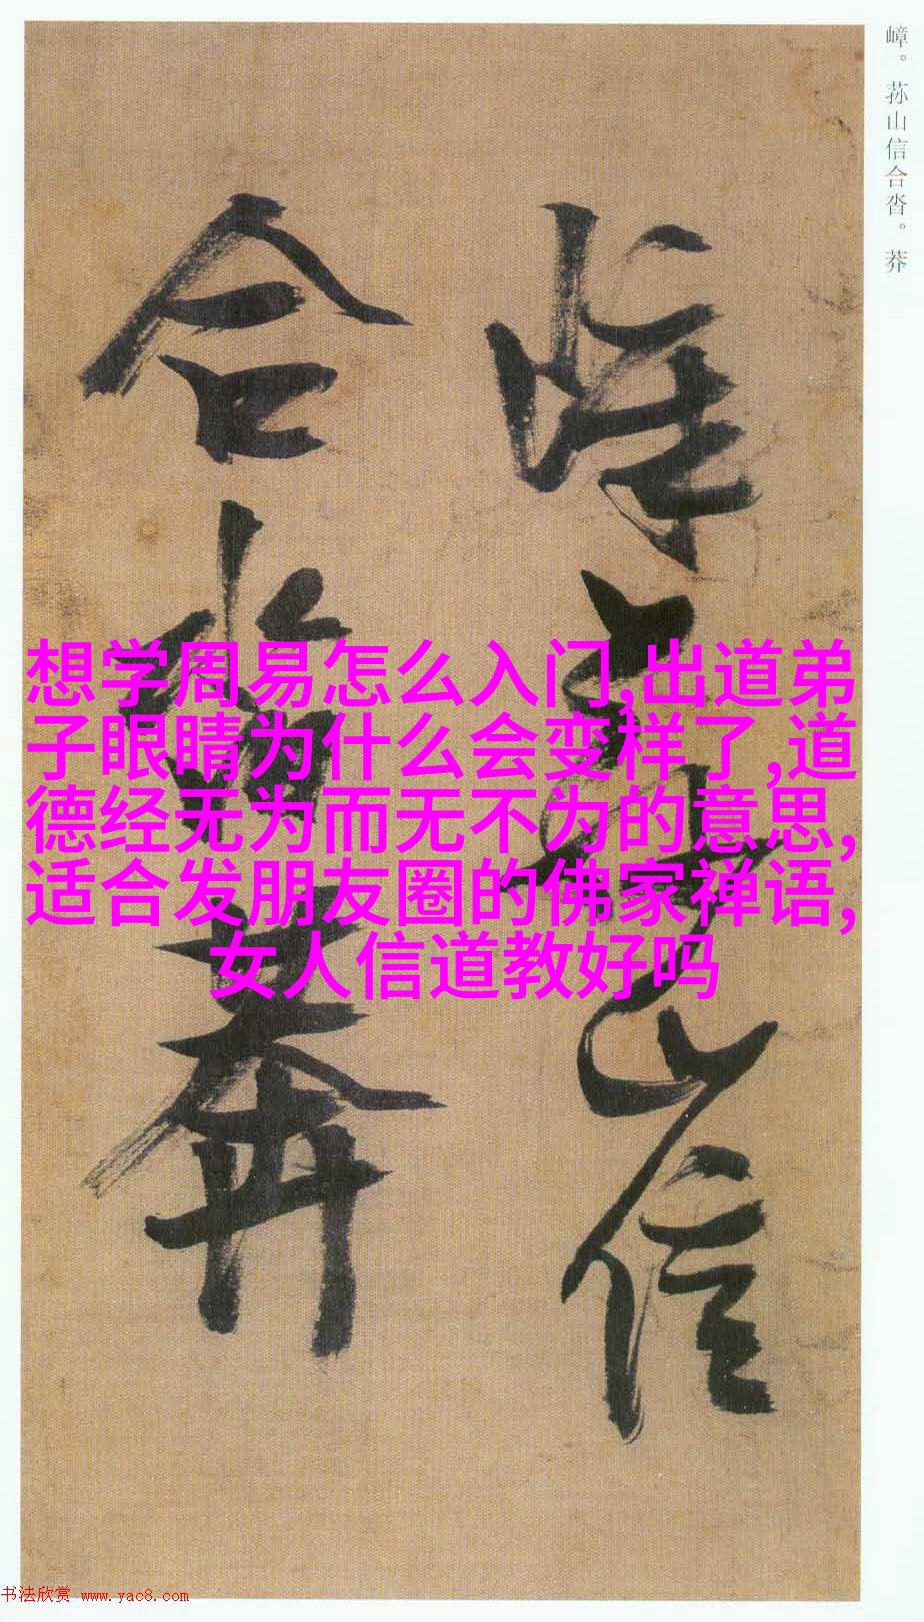 嶂。荪山信合沓。莽
想学周易怎么入门,出道弟
子眼睛为什么会变样了,道
德经无为而无不为的意思,
适合发朋友圈的佛家禅语,
女人信道教好吗
山信
合沓莽
书法欣赏 www.yac8.com